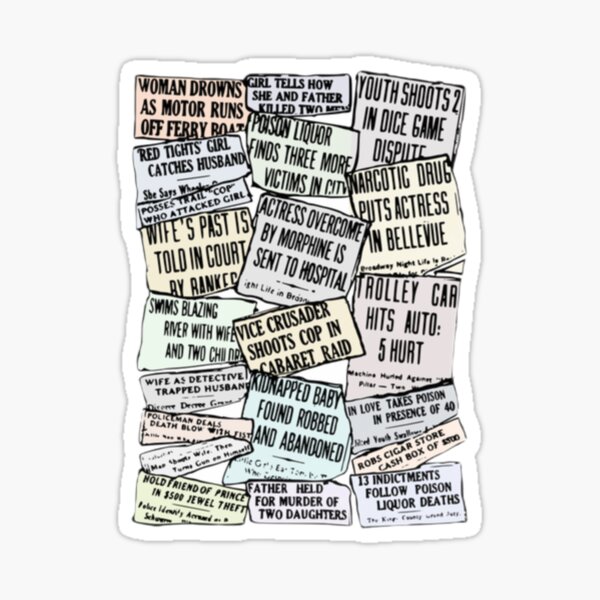 WOMAN DROWNS
AS MOTOR RUNS
OFF FERRY BOAT
'RED TIGHTS' GIRL
CATCHES HUSBAND
She Says
POSSES TRAIL "COP"
WHO ATTACKED GIRL
WIFE'S PAST IS
TOLD IN COURT
BY BANKER
SWIMS BLAZING
RIVER WITH WIFE
AND TWO CHILDR
WIFE AS DETECTIVE
TRAPPED HUSBAND
Divorce Decree
POLICEMAN DEALS
DEATH BLOW WITH FIST
Man Shoots Wife, Then
Turns Gun on Himself
HOLD FRIEND OF PRINCE
IN $500 JEWEL THEFT
Police Identify Accused as a
GIRL TELLS HOW
SHE AND FATHER
KILLED TWO MEN
POISON LIQUOR
FINDS THREE MORE
VICTIMS IN CITY
ACTRESS OVERCOME
BY MORPHINE IS
SENT TO HOSPITAL
ight Life in
VICE CRUSADER
SHOOTS COP IN
CABARET RAID
KIDNAPPED BABY
FOUND ROBBED
AND ABANDONED
FATHER HELD
FOR MURDER OF
TWO DAUGHTERS
YOUTH SHOOTS 2
IN DICE GAME
DISPUTE
NARCOTIC DRUG
PUTS ACTRESS I
IN BELLEVUE
Broadway Night Life Is
TROLLEY CAR
HITS AUTO:
5 HURT
Machine Hurled Against
Pillar — Two
IN LOVE TAKES POISON
IN PRESENCE OF 40
Jilted Youth Swallows
ROBS CIGAR STORE
CASH BOX OF $500
13 INDICTMENTS
FOLLOW POISON
LIQUOR DEATHS
The Kings County Grand Jury